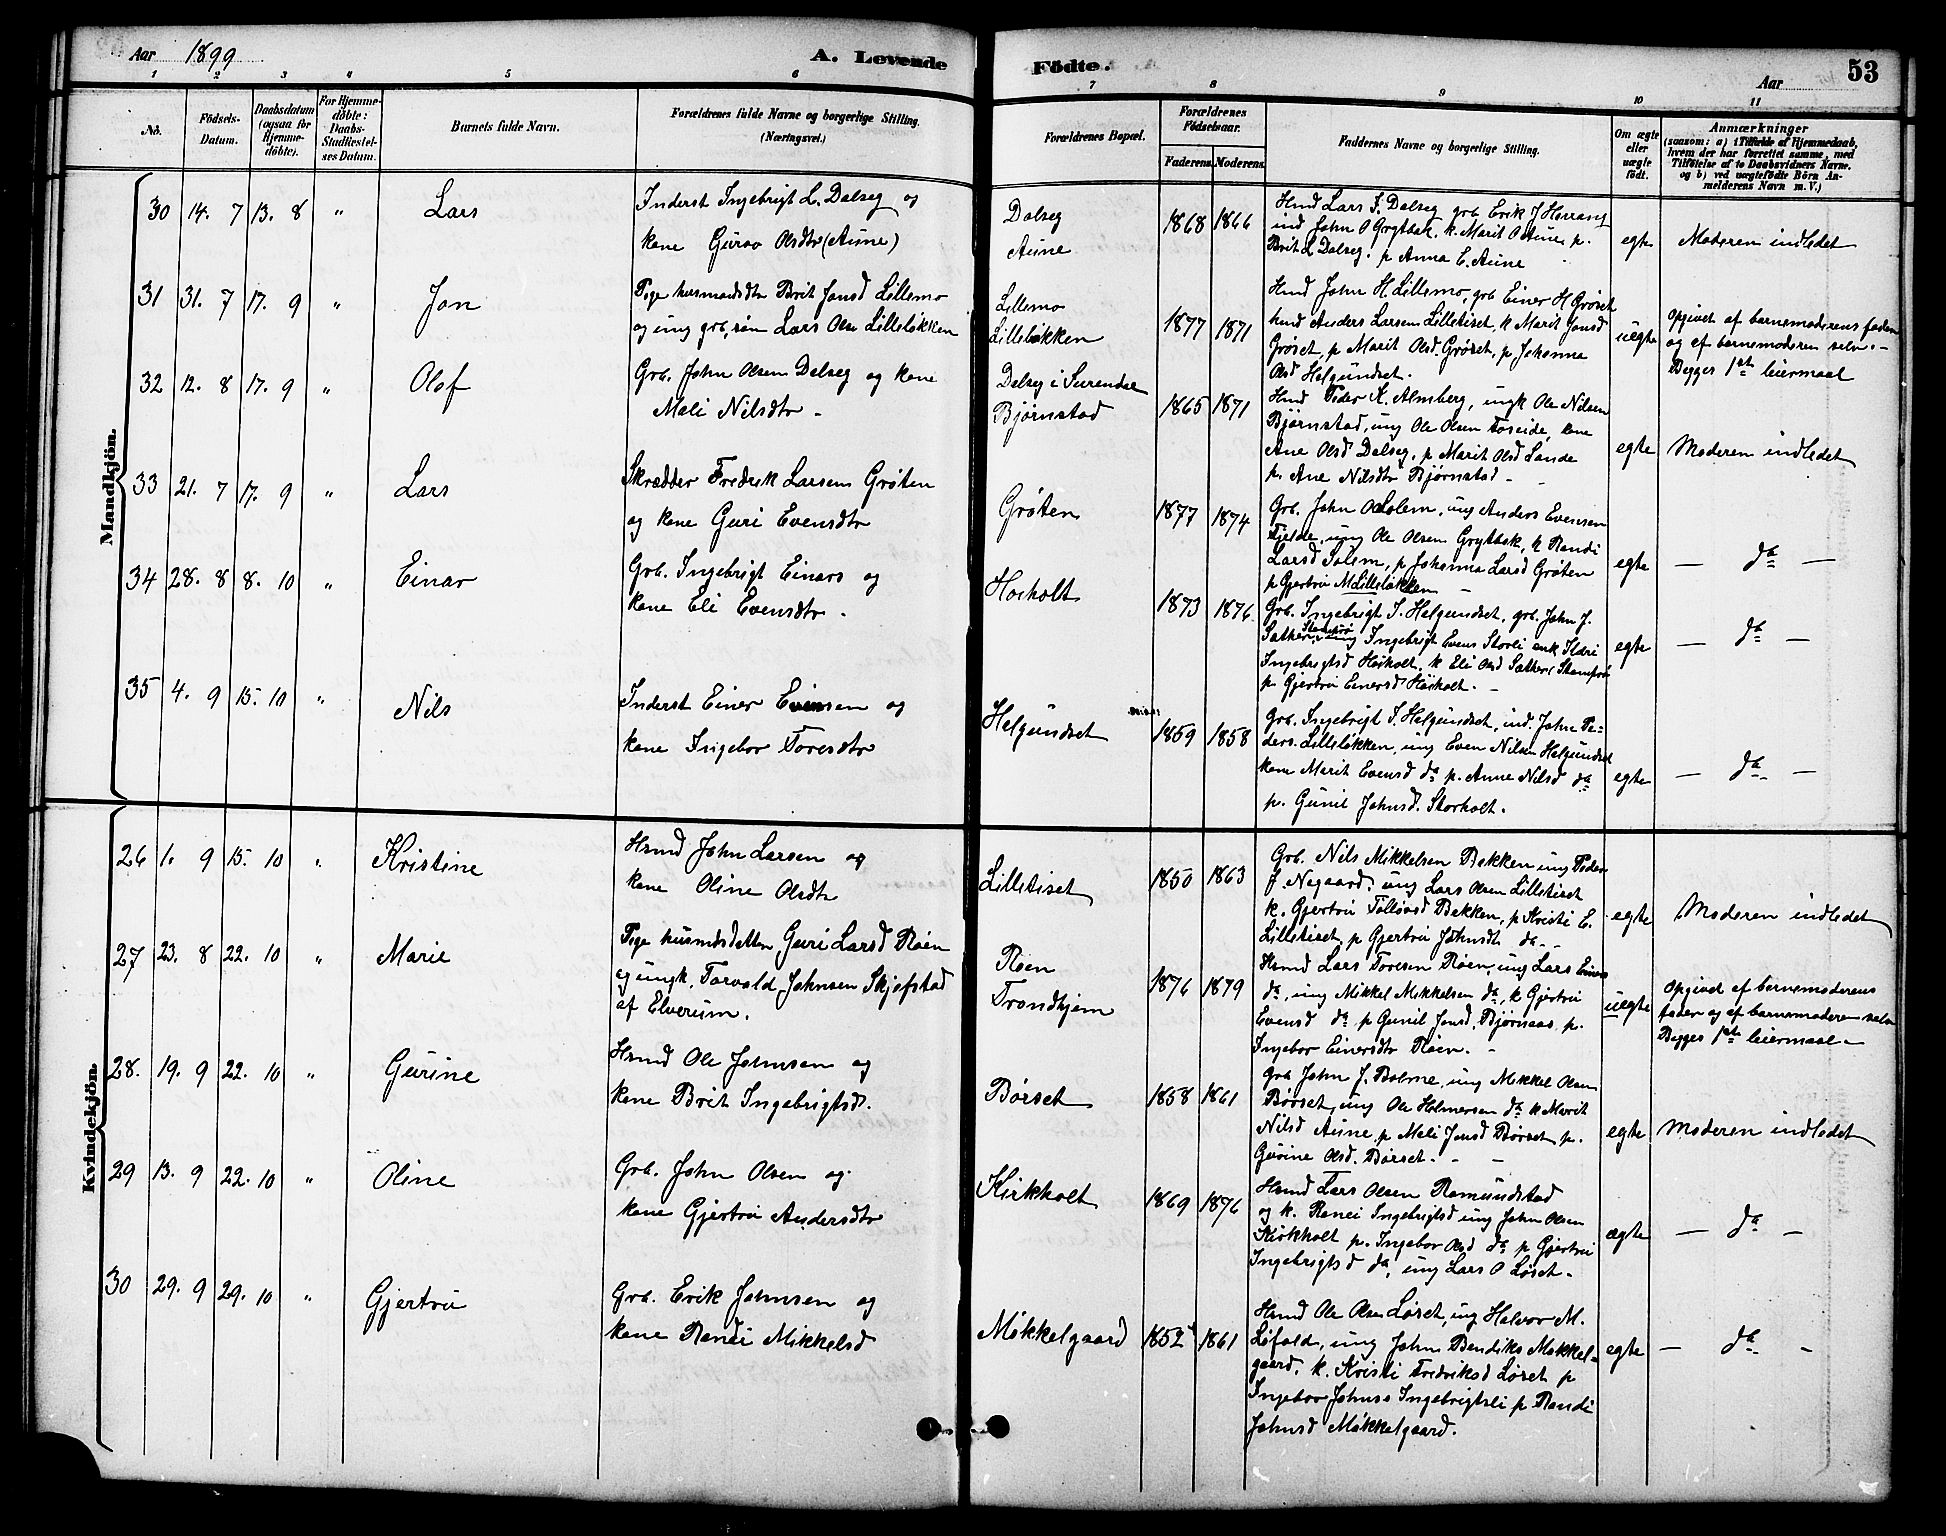 Aar 1899
A. Levende Födte.
Aar
53
1 2 3 4 5 6 7 8 9 10 11
No.
Födsels-Datum.
Daabsdatum (ogsaa for Hjemme-döbte).
For Hjemme-döbte: Daabs-Stadfæstel-ses Datum.
Barnets fulde Navn.
Forældrenes fulde Navne og borgerlige Stilling. (Næringsvei.)
Forældrenes Bopæl.
Forældrenes Födselsaar.
Faderens. Moderens.
Faddernes Navne og borgerlige Stilling.
Om ægte eller uægte födt.
Anmærkninger
(saasom: a) i Tilfælde af Hjemmedaab,
hvem der har forrettet samme, med
Tilföielse af to Daabsvidners Navne.
og b) ved uægtefödte Börn An-
melderens Navn m. V.)
Mandkjön.
30 14. 7 13. 8 " Lars
Inderst Ingebrigt L. Dalseg og
kone Guroo Olsdtr (Aune)
Dalseg
Aune
1868 1866
Hmd Lars I. Dalseg grb. Erik J Herrang
ind John O Grytbak. k. Marit O Aune, p.
Brit L Dalseg. p Anna E. Aune
egte Moderen indledet
31 31. 7 17. 9 " Jon
Pige husmadsdtr Brit Jonsd Lillemo
og ung grb.søn Lars Olsn Lilleløkken
Lillemo
Lilleløkken
1877 1871
Hmd John H. Lillemo, grb Einer H Grøset
hmd Anders Larsen Lilletiset, k Marit Jonsd
Grøset, p Marit Olsd. Grøset, p. Johanna
Olsd Helgundset.
uegte
opgivet af barnemoderens fader
og af barnemoderen selv. -
Begges 1ste leiermaal
32 12. 8 17. 9 " Olof
Grb. John Olsen Dalseg og kone
Mali Nilsdtr -
Dalseg i Surendal
Bjørnstad
1865 1871
Hmd Peder K. Almberg, ungk Ole Nilsen
Bjørnstad, ung Ole Olsen Foseide, kone
Ane Olsd Dalseg, p Marit Olsd Lande
p. Ane Nilsdtr Bjørnstad -
egte Moderen indledet
33 21. 7 17. 9 " Lars
Skrædder Fredrik Larsen Grøten
og kone Guri Evensdtr
Grøten
1877 1874
Grb. John O Solem, ung Anders Evensen
Fjelde, ung Ole Olsen Grytbak, k Randi
Larsd Solem, p Johanna Larsd Grøten
p Gjertru M Lilleløkken -
egte - da -
34 28. 8 8. 10 " Einar
Grb. Ingebrigt Einars og
kone Eli Evensdtr -
Hoiholt
1873 1876.
Grb. Ingebrigt I. Helgundset, grb. John J.
Sæther Stamprø, ung Ingebrigt Evens Storli enk Ildri
Ingebrigtsd Høiholt, k Eli Olsd Sæther (Stamprø
p. Gjertru Einersd Høiholt. -
egte - da -
35 4. 9 15. 10 " Nils
Inderst Einer Evensen og
kone Ingebor Toresdtr
Helgundset
1859 1858
Grb. Ingebrigt I. Helgundset, ind. John Pe-
ders. Lilleløkken, ung Even Nilsen Helgundset
kone Marit Evensd da p. Anne Nilsd da
p. Gunil Johnsd. Storholt.
egte - da -
Kvindekjön.
26 1. 9 15. 10 " Kristine
Hsmd John Larsen og
kone Oline Olsdtr
Lilletiset
1850 1863
Grb. Nils Mikkelsen Bakken ung Peder
J. Negaard, ung Lars Olsen Lilletiset
k. Gjertru Tollovsd Bakken, p Kristi E.
Lilletiset, p Gjertru Johnsdt da -
egte Moderen indledet
27 23. 8 22. 10 " Marie
Pige husmdsdatter Guri Larsd Røen
og ungk. Torvald Johnsen Skjefstad
af Elverum.
Røen
Trondhjem
1876 1879
Hsmd Lars Toresen Røen, ung Lars Einers
da, ung Mikkel Mikkelsen da, k Gjertru
Evensd da p Gunil Jonsd, Bjørnaas, p.
Ingebor Einersdtr Røen. -
uegte
opgivet af barnemoderens
fader og af barnemoderen selv
Begges 1ste leiermaal -
28. 19. 9 22. 10 " Gurine
Hsmd Ole Johnsen og
kone Brit Ingebrigtsd.
Børset
1858 1861
Grb John J. Bolme, ung Mikkel Olsen
Børset, ung Ole Halvorsen da k Marit
Nilsd Aune p Mali Jonsd Børset p.
Gurine Olsd. Børset. -
egte Moderen indledet
29 13. 9 22. 10 " Oline
Grb. John Olsen og
kone Gjertru Andersdtr
Kirkholt
1869 1876
Hsmd Lars Olsen Romundstad
og k. Randi Ingebrigtsd ung John Olsen
Kirkholt p. Ingebor Olsd da p Gjertru
Ingebrigtsd da, ung Lars O Løset -
ægte - da -
30 29. 9 29. 10 " Gjertru
Grb. Erik Johnsen og
kone Randi Mikkelsd
Møkkelgaard
1852 1861
Hsmd Ole Olsen Løset, ung Halvor M.
Løfald, ung John Bendiks Møkkel-
gaard. k. Kristi Fredriksd Løset p
Ingebor Johnsd Ingebrigtsli p Randi
Johnsd Møkkelgaard.
egte - da -